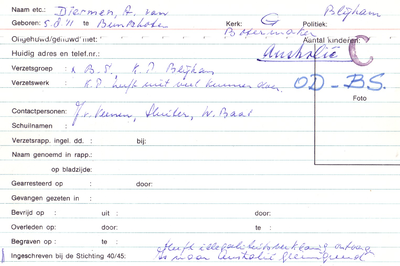 Naam etc.: Diermen, A. van Blijham
Geboren: 5.8.'11 te Bunschoten Kerk: G Politiek:
Botermaker
Ongehuwd/gehuwd met: Aantal kinderen:
Huidig adres en telef.nr.: Australië C
Verzetsgroep : B.S., K.P. Blijham
OD-BS.
Verzetswerk : K.P. heeft niet veel kunnen doen.
Foto
Contactpersonen: J. v. Veenen, Sluiter, W. Baas
Schuilnaam :
Verzetsrapp. ingel. dd. : bij:
Naam genoemd in rapp.:
op bladzijde:
Gearresteerd op : door:
Gevangen gezeten in :
Bevrijd op : uit : door:
Overleden op: door: te :
Begraven op : te : Heeft illegaliteitsverklaring ontvang
Ingeschreven bij de Stichting 40/45: is naar Australië geëmigreerd